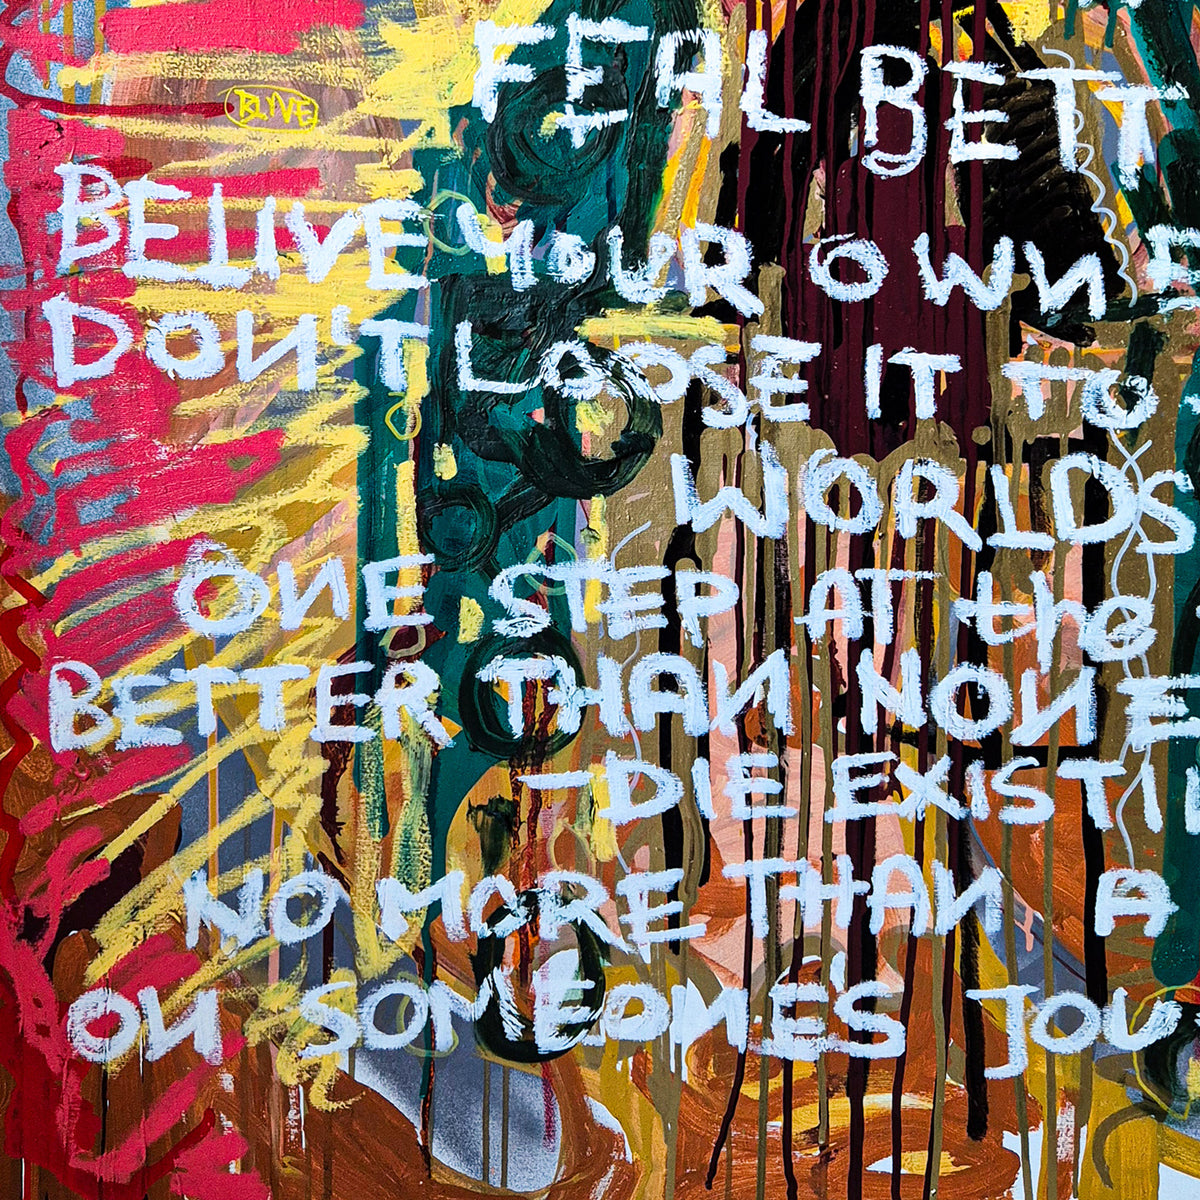 FEAL BETT
BLIVE
BELIVE YOUR OWN E
DON'T LOOSE IT TO
WORLDS
ONE STEP AT the
BETTER THAN NONE
-DIE EXISTI
NO MORE THAN A
ON SOMEOME'S JOU